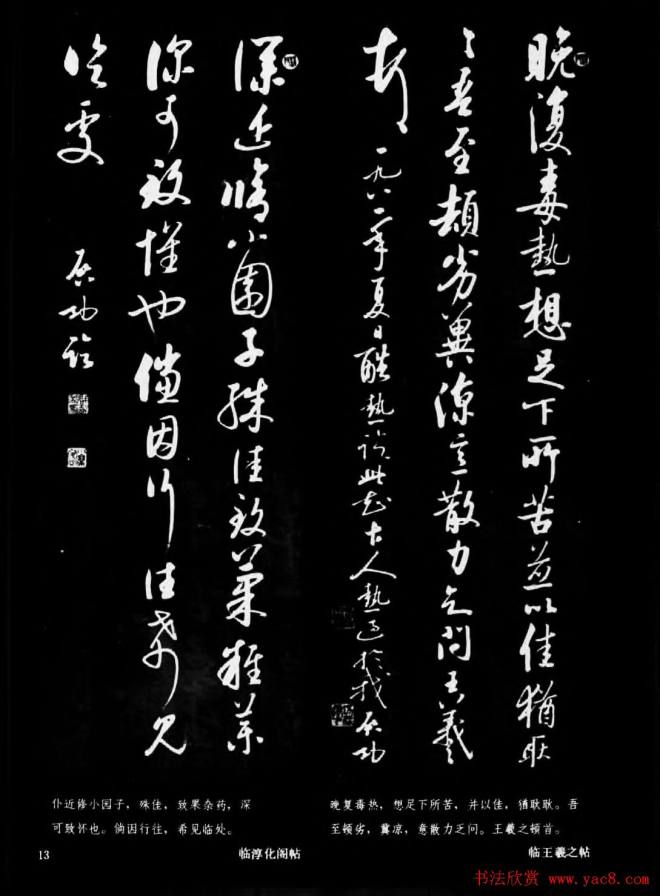 晚復毒熱想足下所苦並以佳猶耿
〻吾至頓劣冀涼意散力乏問王羲
一九八二年夏日酷熱臨此知古人熱過於我 启功
僕近脩小園子殊佳致菓雜藥
深可致懷也儻因行往希見
臨處
启功臨
仆近修小园子，殊佳，致果杂药，深
可致怀也。倘因行往，希见临处。
临淳化阁帖
晚复毒热，想足下所苦，并以佳，犹耿耿。吾
至顿劣，冀凉，意散力乏问。王羲之顿首。
临王羲之帖
13
书法欣赏 www.yac8.com